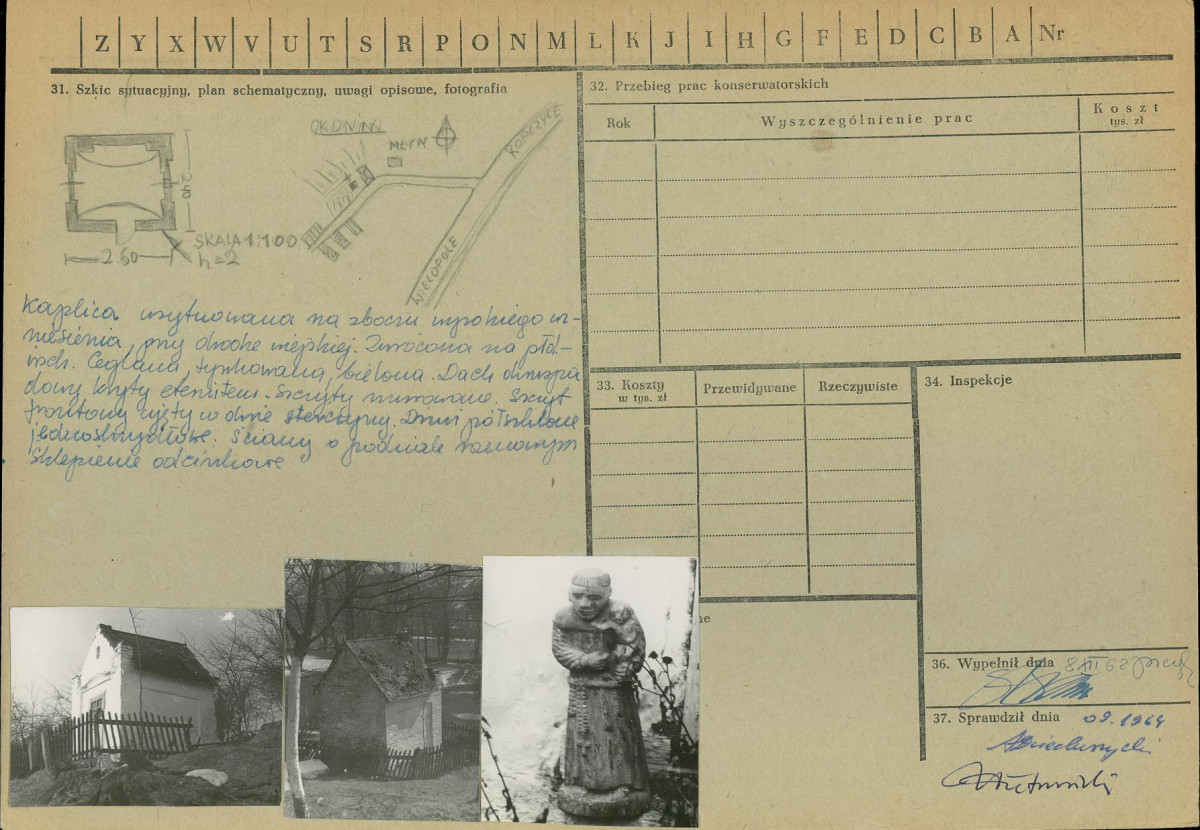 Z Y X W V U T S R P O N M L K J I H G F E D C B A Nr
31. Szkic sytuacyjny, plan schematyczny, uwagi opisowe, fotografia
OKONIN
MŁYN
ROPCZYCE
WIELOPOLE
240
SKALA 1:100
260
h=2
Kaplica usytuowana na zboczu wysokiego wz-
niesienia, przy drodze wiejskiej. Zwrócona na płd-
wsch. Ceglana, tynkowana, bielona. Dach dwuspa
dowy kryty eternitem. Szczyty murowane. Szczyt
frontowy ujęty w dwie sterczyny. Drzwi półszklone
jednoskrzydłowe. Ściany o podziale ramowym
Sklepienie odcinkowe
32. Przebieg prac konserwatorskich
Rok
Wyszczególnienie prac
Koszt
tys. zł
33. Koszty
w tys. zł
Przewidywane
Rzeczywiste
34. Inspekcje
ne
36. Wypełnił dnia 8 XII 62
37. Sprawdził dnia 09.1964